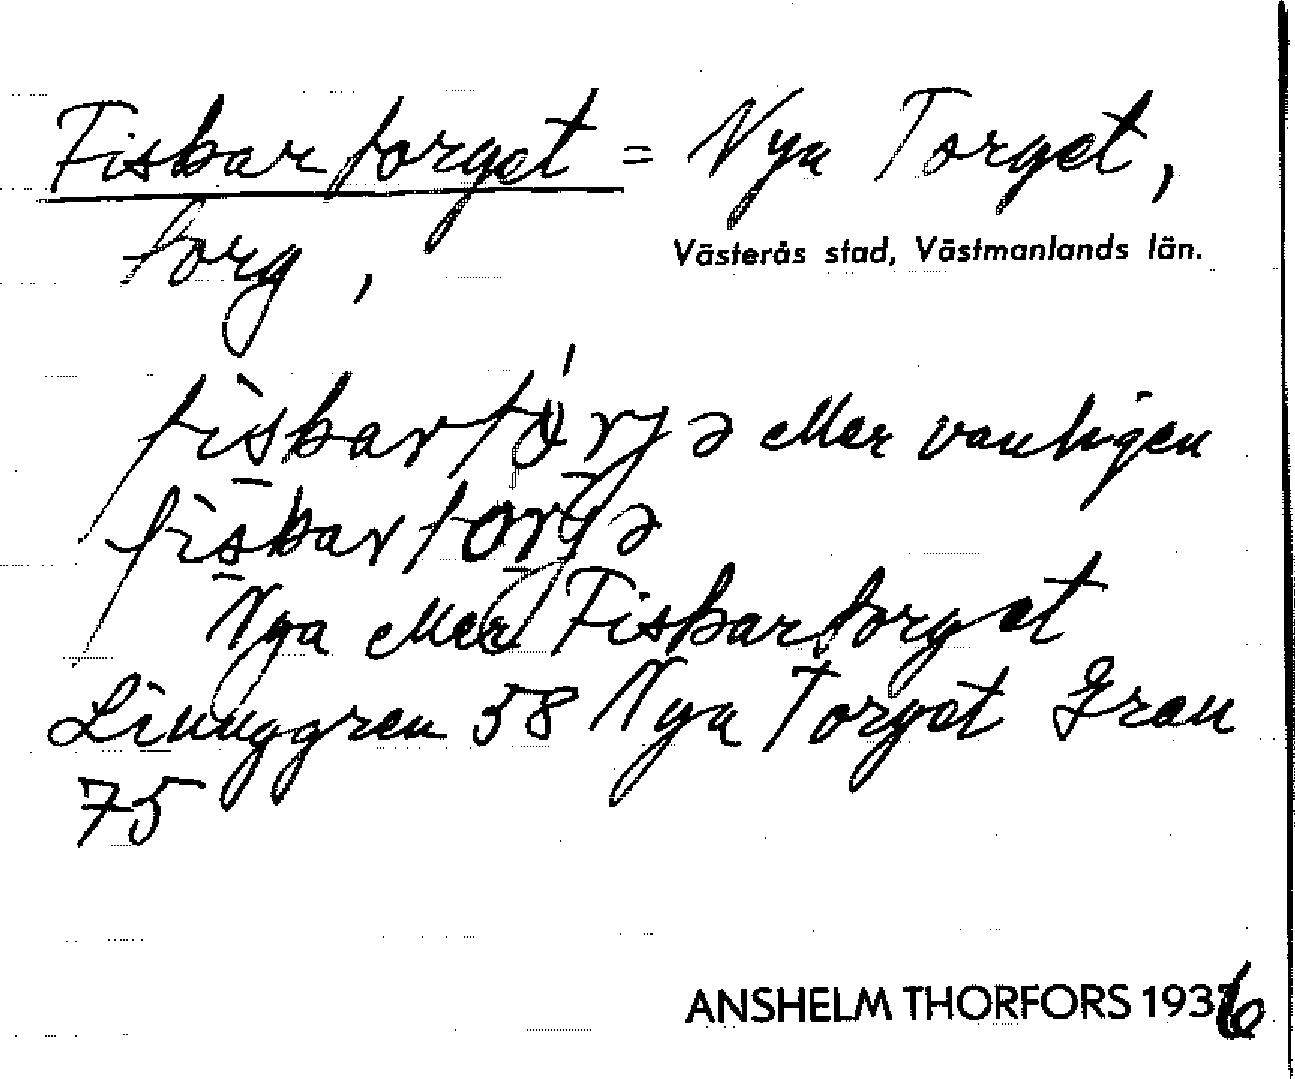 Fiskartorget = Nya Torget,
torg,
Västerås stad, Västmanlands län.
fìskartórjə eller vanligen
fìskartòrjə
Nya eller Fiskartorget
Linnggren 58 Nya Torget Gran
75
ANSHELM THORFORS 1936